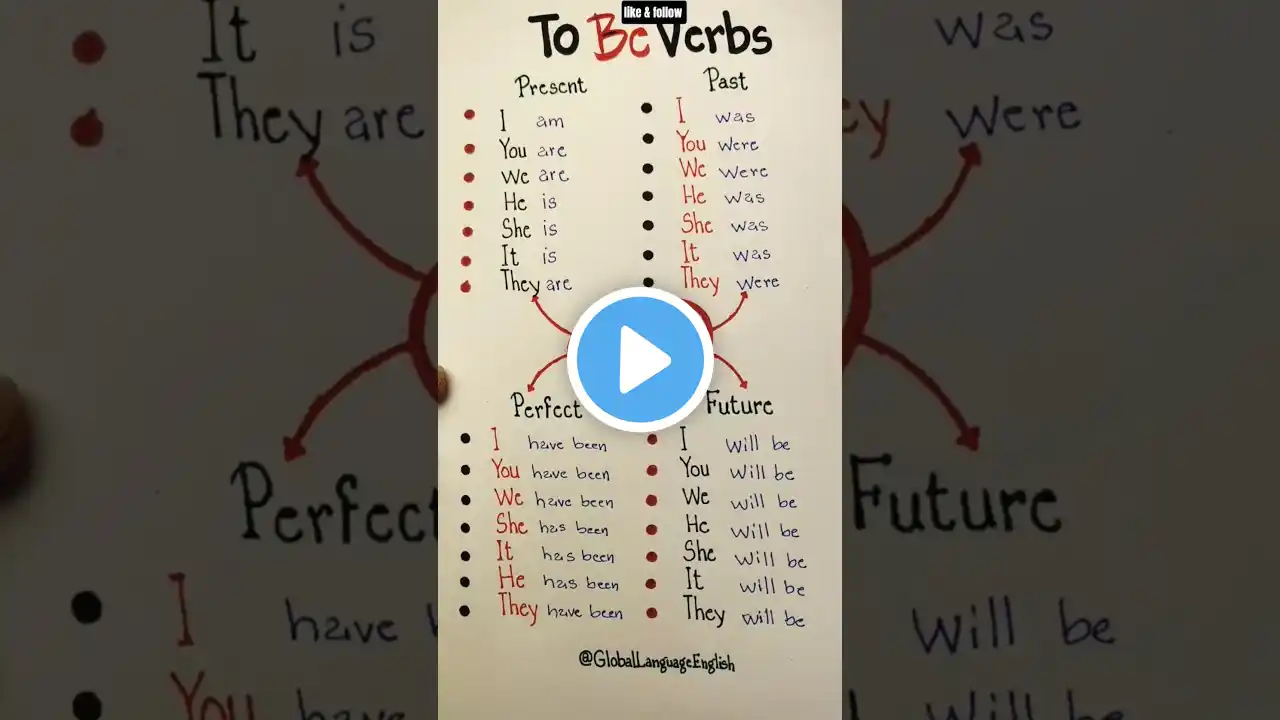 like & follow
To Be Verbs
Present
I am
You are
We are
He is
She is
It is
They are
Past
I was
You were
We were
He was
She was
It was
They were
Perfect
I have been
You have been
We have been
She has been
It has been
He has been
They have been
Future
I will be
You will be
We will be
He will be
She will be
It will be
They will be
@GlobalLanguageEnglish
It is
They are
Perfec
I have
You have
was
were
Future
will be
will be